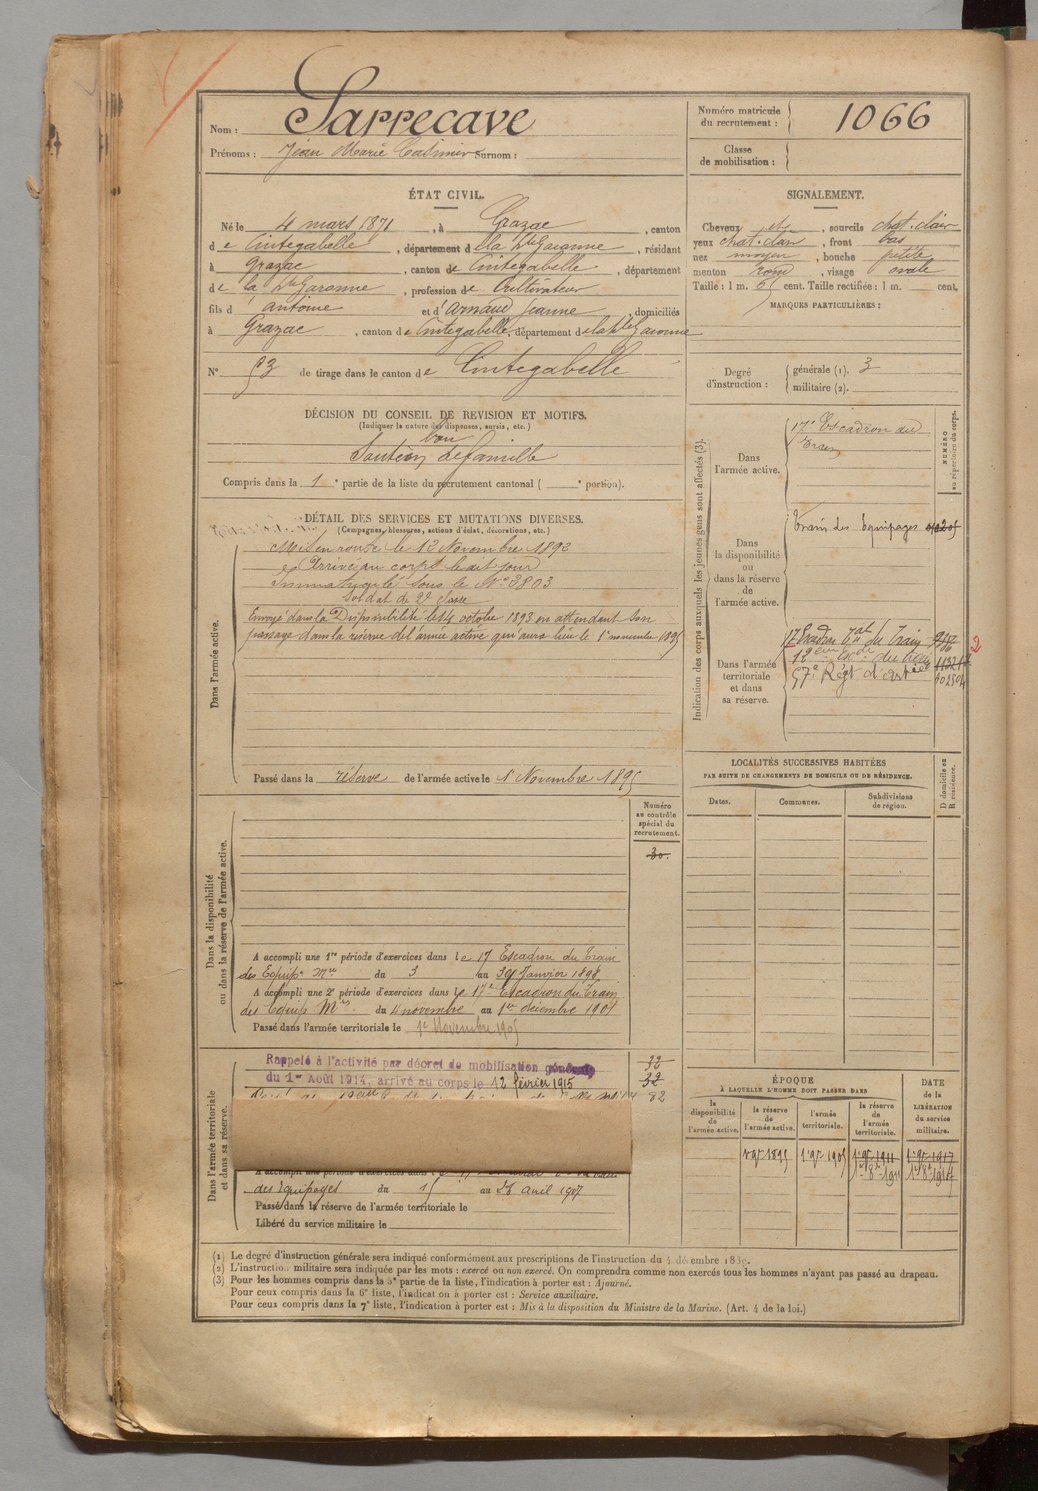 Nom : Sarrecave
Prénoms : Jean Marie Casimir Surnom :
Numéro matricule du recrutement : 1066
Classe de mobilisation :
ÉTAT CIVIL.
Né le 4 mars 1871, à Grazac, canton
de Cintegabelle, département de la Hte Garonne, résidant
à Grazac, canton de Cintegabelle, département
de la Hte Garonne, profession de Cultivateur
fils d'antoine et d'Arnaud Jeanne, domiciliés
à Grazac, canton de Cintegabelle, département de la Hte Garonne
N° 53 de tirage dans le canton de Cintegabelle
SIGNALEMENT.
Cheveux et, sourcils chat. clair
yeux chat. clair, front bas
nez moyen, bouche petite
menton rond, visage ovale
Taille : 1 m. 65 cent. Taille rectifiée : 1 m. cent.
MARQUES PARTICULIÈRES :
Degré d'instruction : générale (1). 3
militaire (2).
DÉCISION DU CONSEIL DE REVISION ET MOTIFS.
(Indiquer la nature des dispenses, sursis, etc.)
bon
Soutien de famille
Compris dans la 1e partie de la liste du recrutement cantonal ( e portion).
DÉTAIL DES SERVICES ET MUTATIONS DIVERSES.
(Campagnes, blessures, actions d'éclat, décorations, etc.)
Dans l'armée active.
Mis en route le 12 Novembre 1892
Arrivé au corps le dit jour
Immatriculé sous le N° 3803
Soldat de 2e classe
Envoyé dans la Disponibilité le 14 octobre 1893 en attendant son
passage dans la réserve de l'armée active qui aura lieu le 1er novembre 1895
Passé dans la réserve de l'armée active le 1er Novembre 1895
Indication des corps auxquels les jeunes gens sont affectés (3).
NUMÉRO au répertoire du corps.
Dans l'armée active.
17e Escadron du
Train
Dans la disponibilité ou dans la réserve de l'armée active.
Train des Equipages
Dans l'armée territoriale et dans sa réserve.
17 Escadron Tal du Train
57e Régt d'artie
LOCALITÉS SUCCESSIVES HABITÉES
PAR SUITE DE CHANGEMENTS DE DOMICILE OU DE RÉSIDENCE.
D domicile ou R résidence.
Dates. Communes. Subdivisions de région.
Dans la disponibilité ou dans la réserve de l'armée active.
Numéro au contrôle spécial du recrutement.
30.
A accompli une 1re période d'exercices dans le 17 Escadron du Train
des Equip. Mres du 3 au 30 Janvier 1898
A accompli une 2e période d'exercices dans le 17e Escadron du Train
des Equip Mres du 4 novembre au 1er décembre 1901
Passé dans l'armée territoriale le 1er Novembre 1905
Dans l'armée territoriale et dans sa réserve.
Rappelé à l'activité par décret de mobilisation générale
du 1er Août 1914, arrivé au corps le 12 février 1915
32
32
32
A accompli une période d'exercices dans
des Equipages du 15 au 28 avril 1907
Passé dans la réserve de l'armée territoriale le
Libéré du service militaire le
ÉPOQUE
À LAQUELLE L'HOMME DOIT PASSER DANS
la disponibilité de l'armée active.
la réserve de l'armée active.
l'armée territoriale.
la réserve de l'armée territoriale.
DATE de la LIBÉRATION du service militaire.
1 9bre 1895 1 9bre 1905 1 9bre 1911 1 9bre 1917
(1) Le degré d'instruction générale sera indiqué conformément aux prescriptions de l'instruction du 4 décembre 1889.
(2) L'instruction militaire sera indiquée par les mots : exercé ou non exercé. On comprendra comme non exercés tous les hommes n'ayant pas passé au drapeau.
(3) Pour les hommes compris dans la 5e partie de la liste, l'indication à porter est : Ajourné.
Pour ceux compris dans la 6e liste, l'indication à porter est : Service auxiliaire.
Pour ceux compris dans la 7e liste, l'indication à porter est : Mis à la disposition du Ministre de la Marine. (Art. 4 de la loi.)